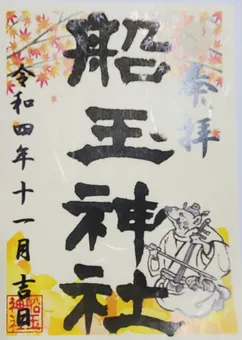 奉拝
船玉神社
令和四年十一月吉日
船玉神社